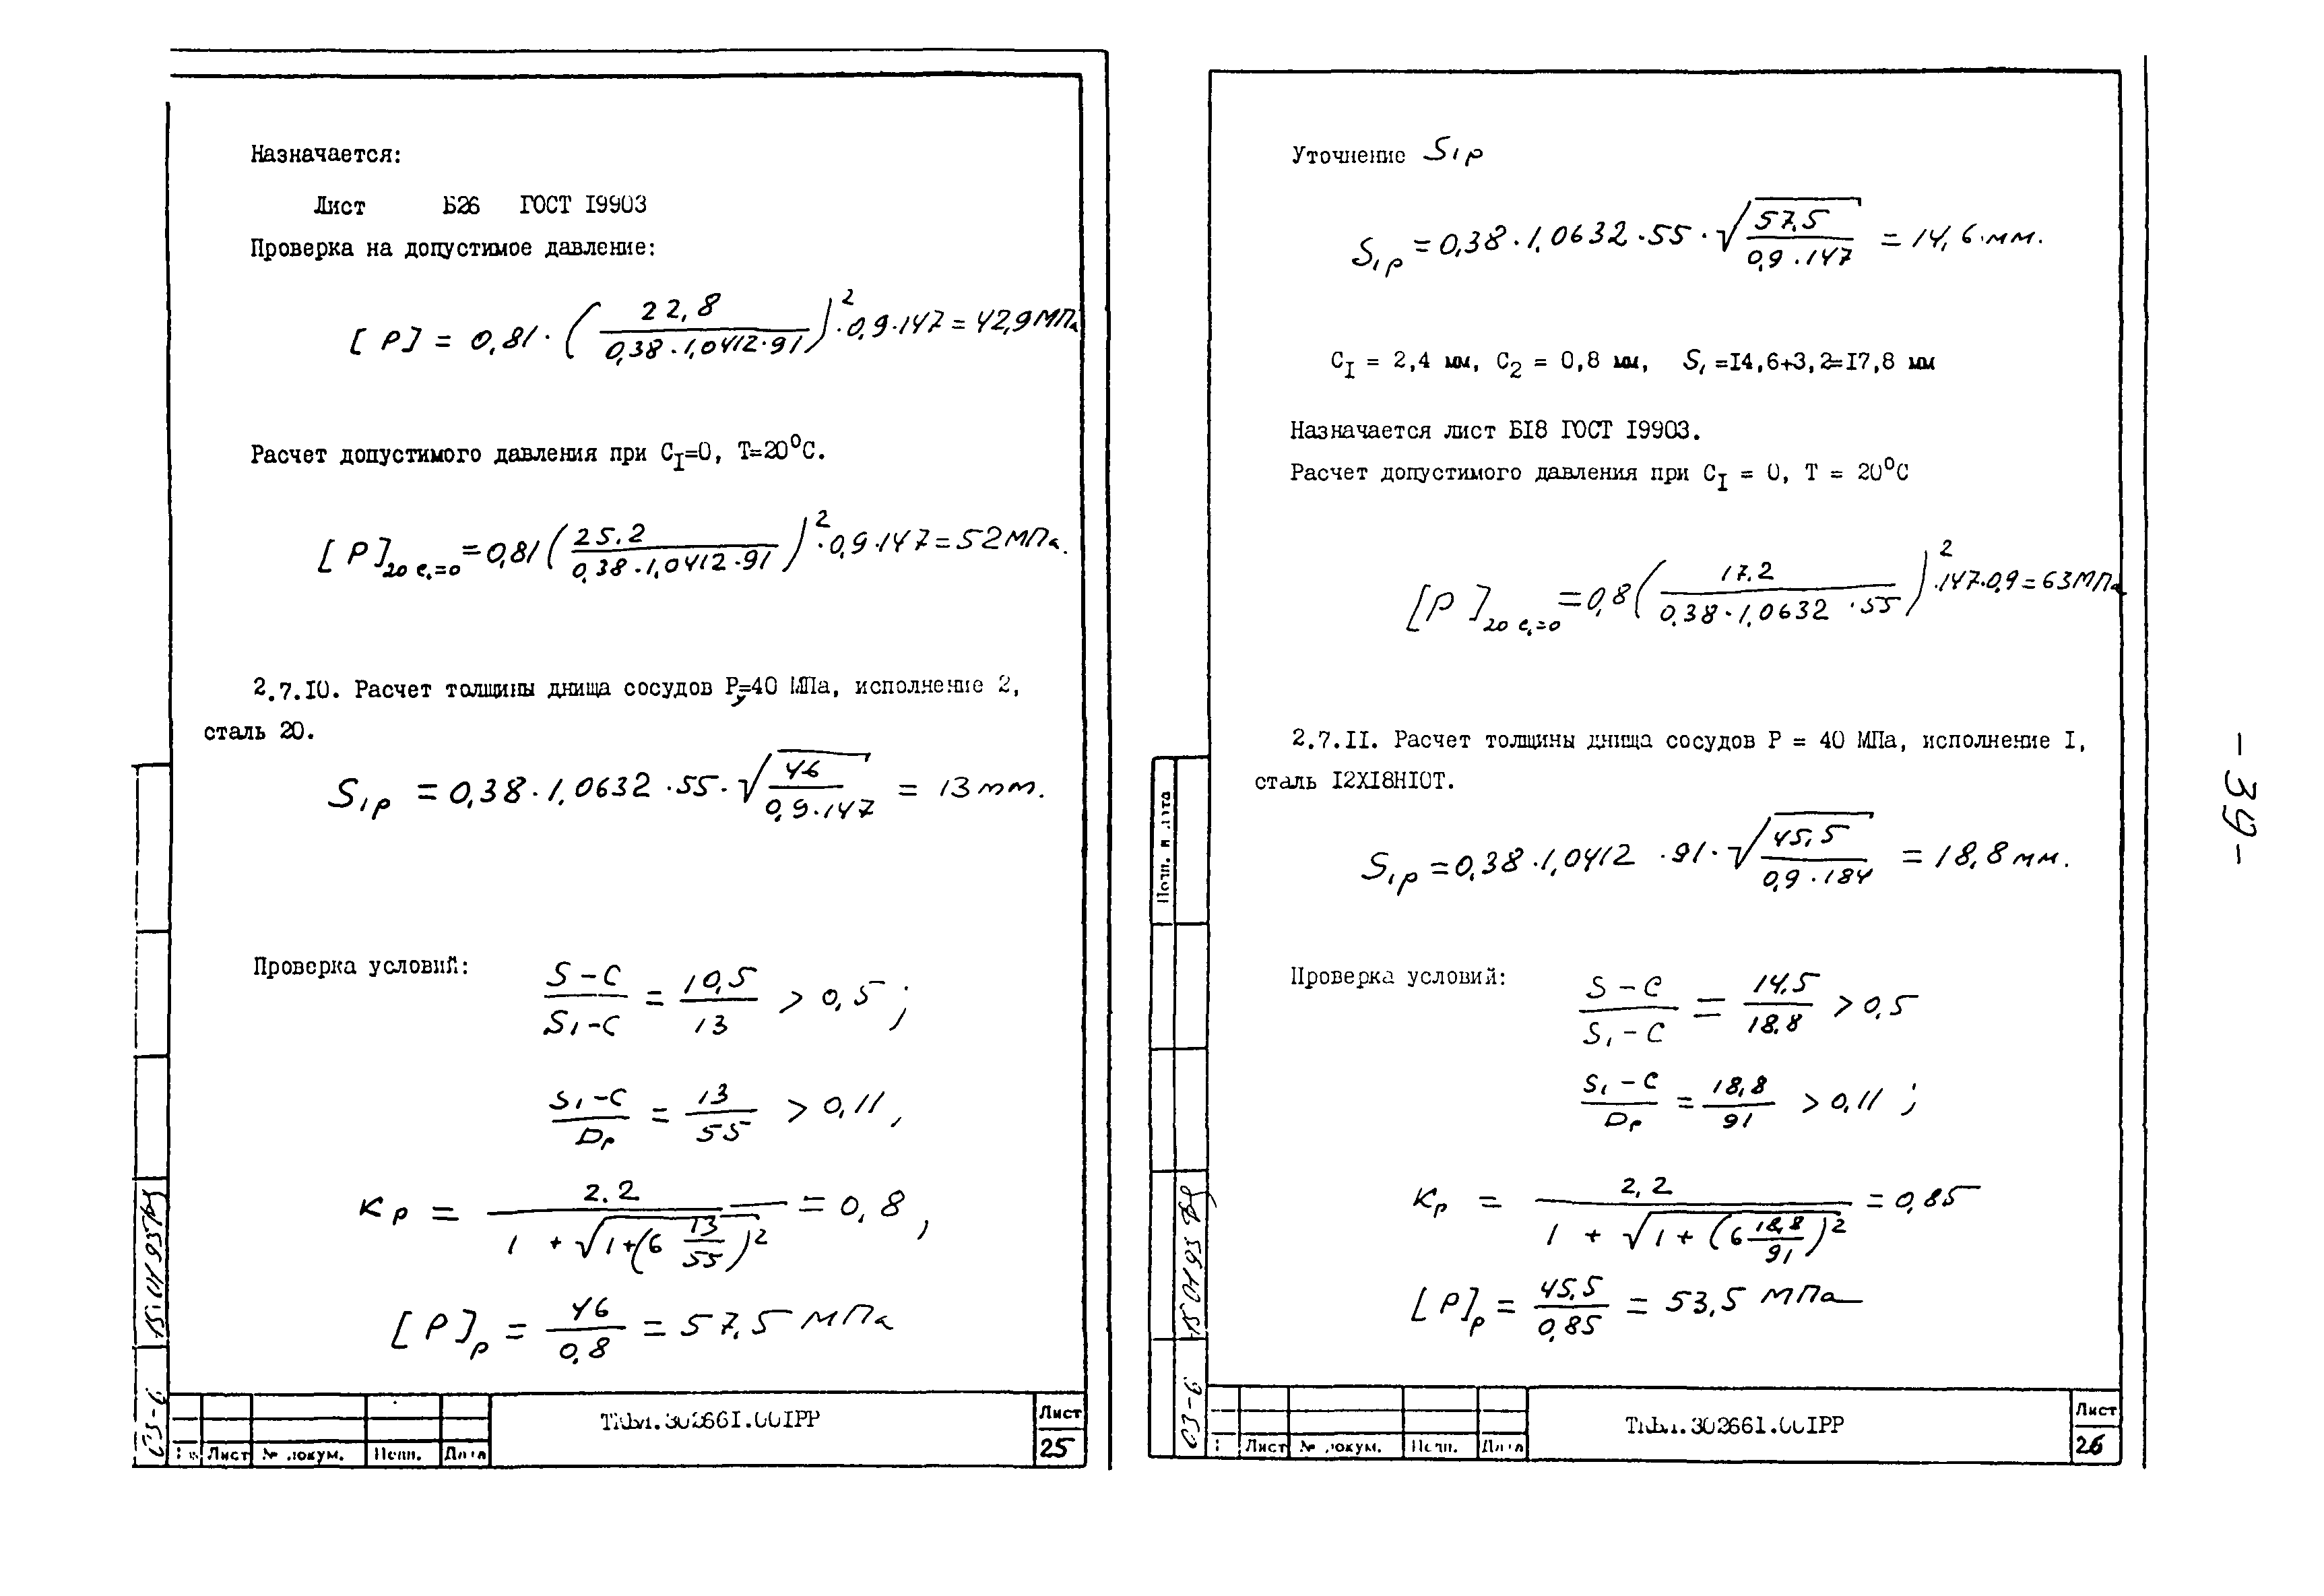 Назначается:
Лист Б26 ГОСТ I9903
Проверка на допустимое давление:
[P] = 0,81·(22,8 / 0,38·1,0412·91)²·0,9·147 = 42,9 МПа
Расчет допустимого давления при C_I=0, T=20°C.
[P]20 c₁=0 = 0,81(25.2 / 0,38·1,0412·91)²·0,9·147 = 52 МПа.
2.7.I0. Расчет толщины днища сосудов Pу=40 МПа, исполнение 2,
сталь 20.
S₁р = 0,38·1,0632·55·√(46 / 0,9·147) = 13 мм.
Проверка условий:
S-C / S₁-C = 10,5 / 13 > 0,5 ;
S₁-C / Dр = 13 / 55 > 0,11 ,
Kр = 2.2 / 1 + √(1+(6 13/55)²) = 0,8 ,
[P]р = 46 / 0,8 = 57,5 МПа
302661.00IPP
Лист
25
Лист № докум. Подп. Дата
15.01.93
03-6
Уточнение S₁р
S₁р = 0,38·1,0632·55·√(57,5 / 0,9·147) = 14,6 мм.
C_I = 2,4 мм, C₂ = 0,8 мм, S₁ =I4,6+3,2=I7,8 мм
Назначается лист БI8 ГОСТ I9903.
Расчет допустимого давления при C_I = 0, T = 20°C
[P]20 c₁=0 = 0,8(17.2 / 0,38·1,0632·55)²·147·0,9 = 63 МПа
2.7.II. Расчет толщины днища сосудов P = 40 МПа, исполнение I,
сталь I2XI8HI0T.
S₁р = 0,38·1,0412·91·√(45,5 / 0,9·184) = 18,8 мм.
Проверка условий:
S-C / S₁-C = 14.5 / 18.8 > 0,5
S₁-C / Dр = 18,8 / 91 > 0,11 ;
Kр = 2,2 / 1 + √(1+(6 18,8/91)²) = 0,85
[P]р = 45,5 / 0,85 = 53,5 МПа
302661.00IPP
Лист
26
Лист № докум. Подп. Дата
Подп. и дата
15.01.93
03-6
-39-